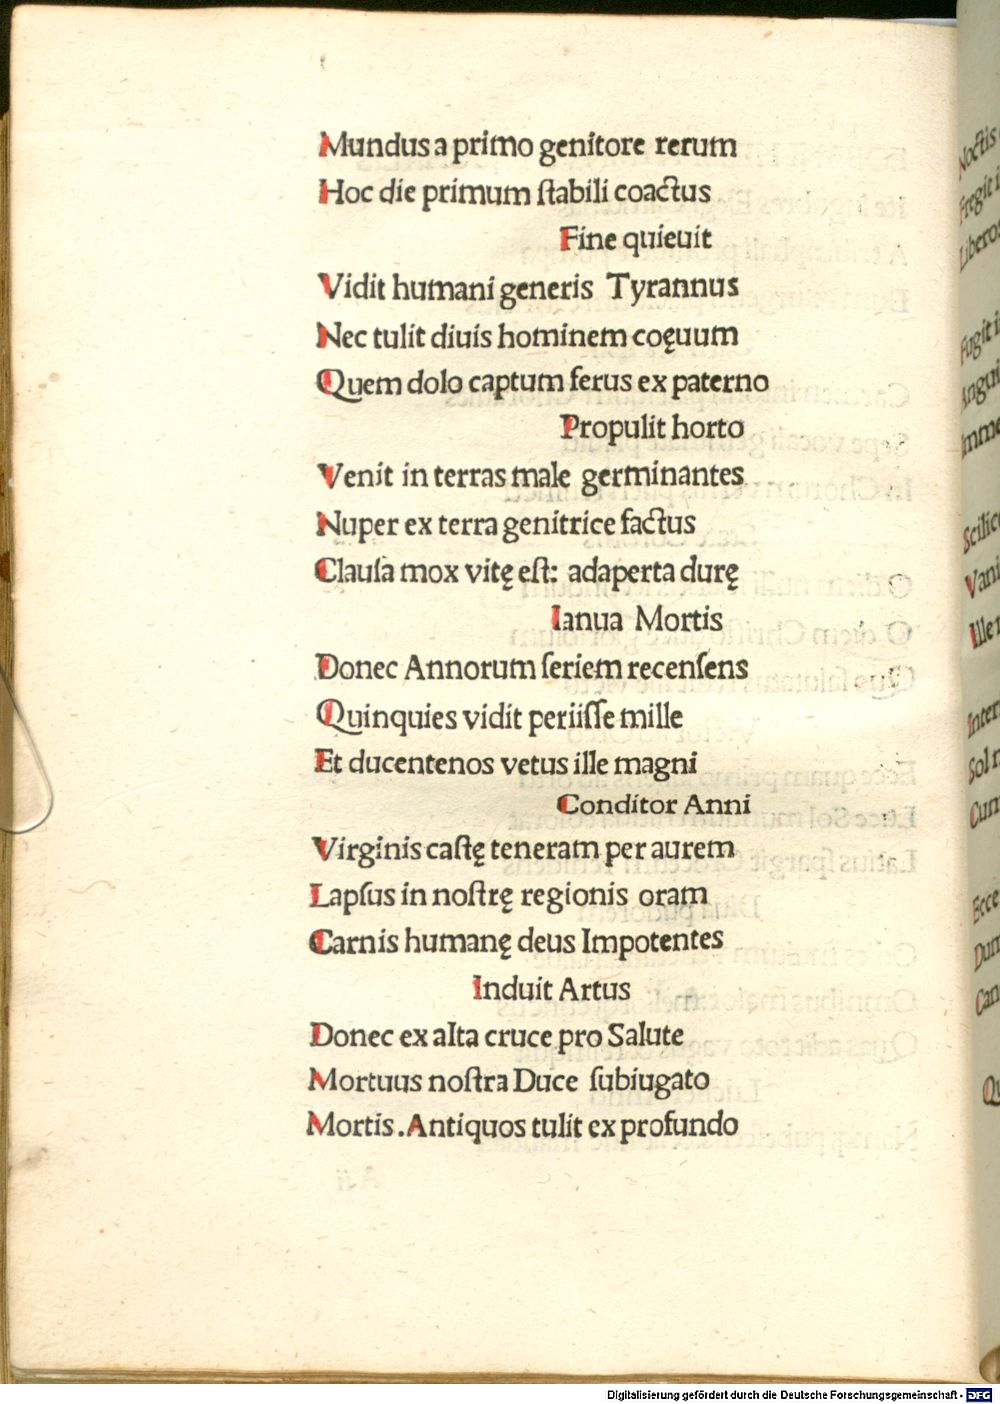 Mundus a primo genitore rerum
Hoc die primum ſtabili coactus
Fine quieuit
Vidit humani generis Tyrannus
Nec tulit diuis hominem coęuum
Quem dolo captum ferus ex paterno
Propulit horto
Venit in terras male germinantes
Nuper ex terra genitrice factus
Clauſa mox vitę eſt: adaperta durę
Ianua Mortis
Donec Annorum ſeriem recenſens
Quinquies vidit periiſſe mille
Et ducentenos vetus ille magni
Conditor Anni
Virginis caſtę teneram per aurem
Lapſus in noſtrę regionis oram
Carnis humanę deus Impotentes
Induit Artus
Donec ex alta cruce pro Salute
Mortuus noſtra Duce ſubiugato
Mortis. Antiquos tulit ex profundo
Noctis
Fregit i
Liberos
Fugit i
Angui
Imme
Scilice
Vani
Ille
Inter
Sol
Cum
Ecce
Dum
Can
Qu
Digitalisierung gefördert durch die Deutsche Forschungsgemeinschaft - DFG